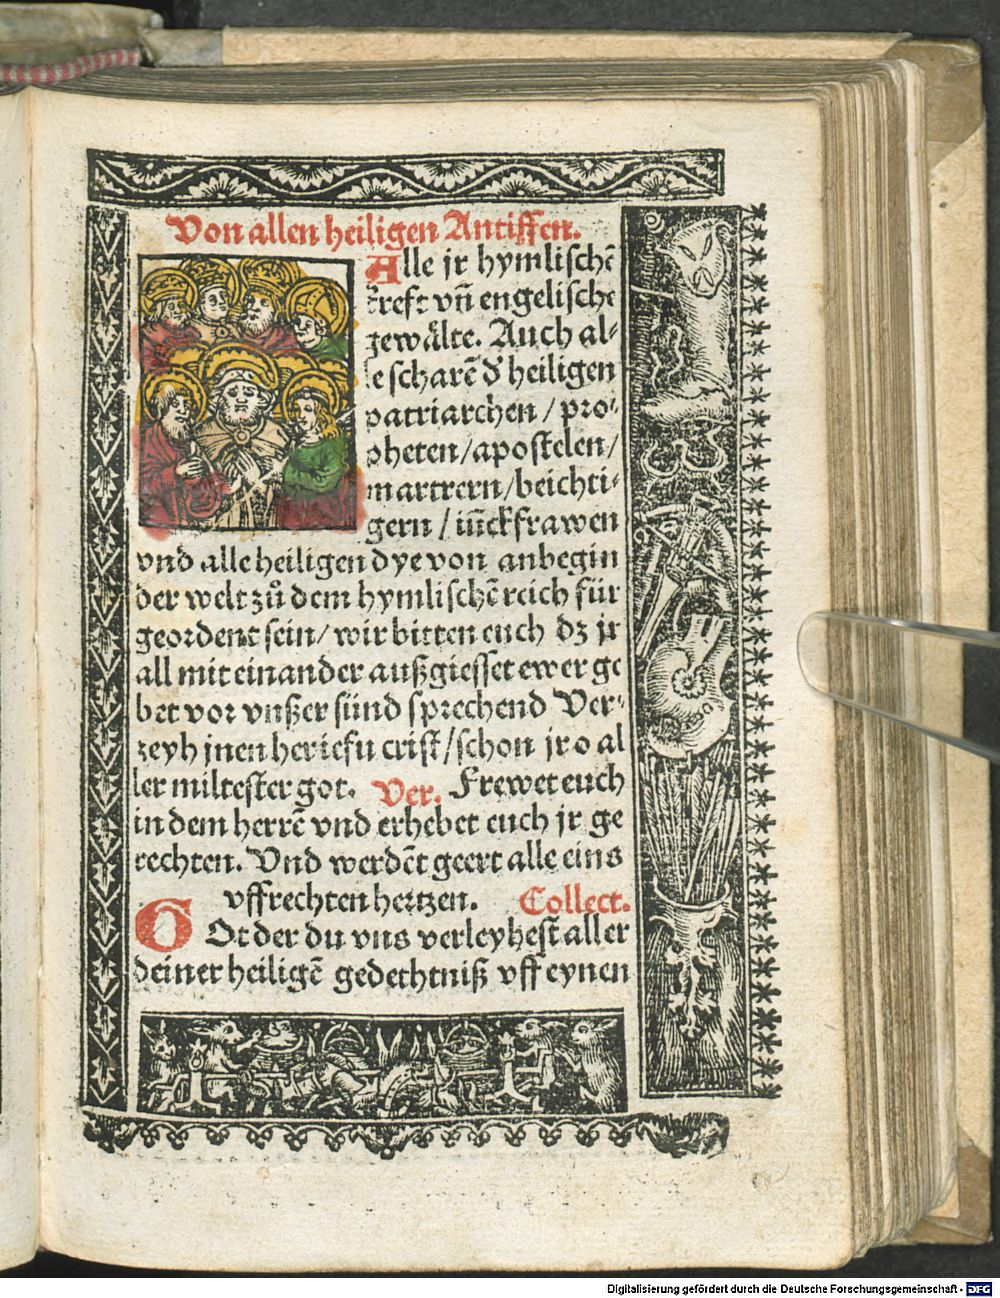 Von allen heiligen Antiffen.
Alle jr hymlischē
kreft vñ engelische
gewålte. Auch al-
le scharē d' heiligen
patriarchen / pro-
pheten / apostelen /
martrern / beichti-
gern / iūckfrawen
vnd alle heiligen dye von anbegin
der welt zů dem hymlischē reich für
geordent sein / wir bitten euch dz jr
all mit einander außgiesset ewer ge
bet vor vnßer sünd sprechend Ver-
zeyh jnen her iesu crist / schon jr o al
ler miltester got. Ver. Frewet euch
in dem herrē vnd erhebet euch jr ge
rechten. Vnd werdēt geert alle eins
vffrechten hertzen. Collect.
GOt der du vns verleyhest aller
deiner heiligē gedechtniß vff eynen
Digitalisierung gefördert durch die Deutsche Forschungsgemeinschaft - DFG